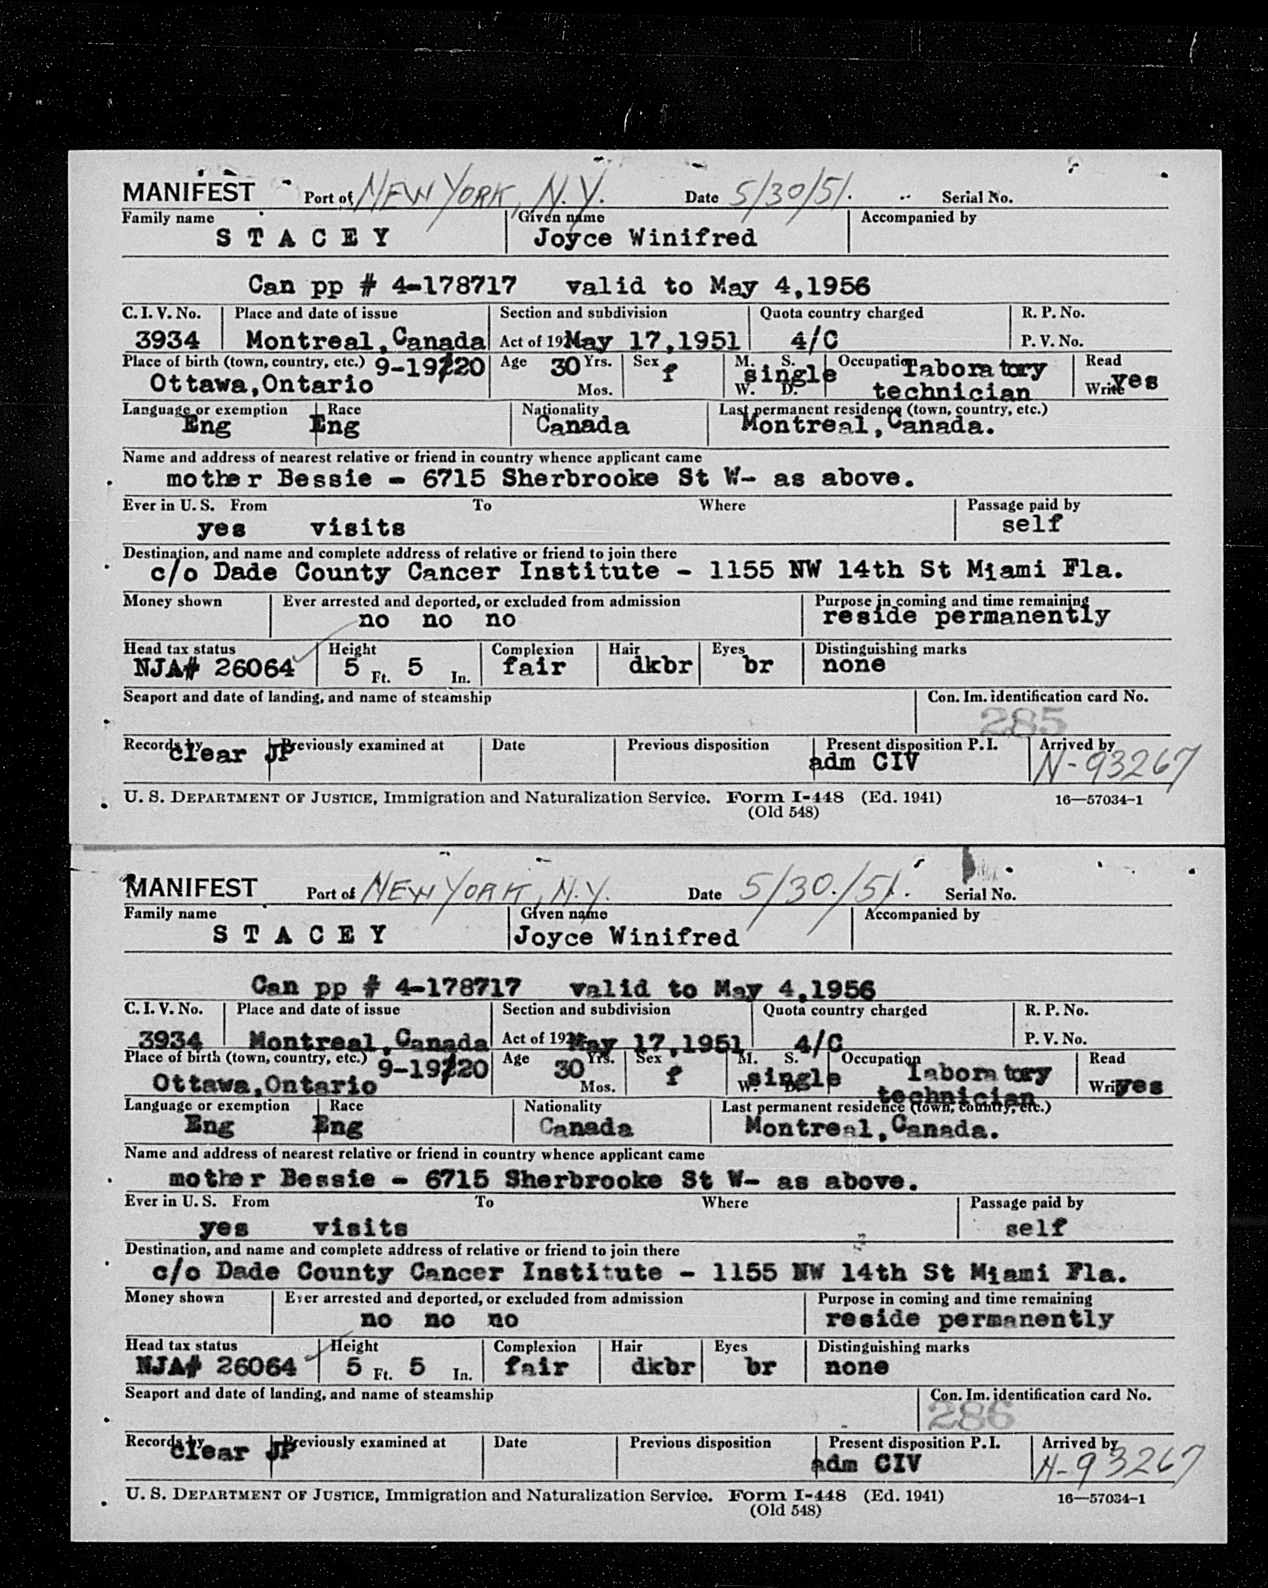 MANIFEST Port of NEW YORK, N.Y. Date 5/30/51. Serial No.
Family name Given name Accompanied by
S T A C E Y Joyce Winifred
Can pp # 4-178717 valid to May 4,1956
C. I. V. No. Place and date of issue Section and subdivision Quota country charged R. P. No.
3934 Montreal,Canada Act of 192 May 17,1951 4/C P. V. No.
Place of birth (town, country, etc.) 9-1920 Age 30 Yrs. Sex f M. S. single Occupation laboratory Read
Ottawa,Ontario Mos. W. D. technician Write yes
Language or exemption Race Nationality Last permanent residence (town, country, etc.)
Eng Eng Canada Montreal,Canada.
Name and address of nearest relative or friend in country whence applicant came
mother Bessie - 6715 Sherbrooke St W- as above.
Ever in U. S. From To Where Passage paid by
yes visits self
Destination, and name and complete address of relative or friend to join there
c/o Dade County Cancer Institute - 1155 NW 14th St Miami Fla.
Money shown Ever arrested and deported, or excluded from admission Purpose in coming and time remaining
no no no reside permanently
Head tax status Height Complexion Hair Eyes Distinguishing marks
NJA# 26064 5 Ft. 5 In. fair dkbr br none
Seaport and date of landing, and name of steamship Con. Im. identification card No.
285
Records by Previously examined at Date Previous disposition Present disposition P. I. Arrived by
clear JP adm CIV N-93267
U. S. DEPARTMENT OF JUSTICE, Immigration and Naturalization Service. Form I-448 (Ed. 1941) 16—57034-1
(Old 548)
MANIFEST Port of NEW YORK, N.Y. Date 5/30/51. Serial No.
Family name Given name Accompanied by
S T A C E Y Joyce Winifred
Can pp # 4-178717 valid to May 4,1956
C. I. V. No. Place and date of issue Section and subdivision Quota country charged R. P. No.
3934 Montreal,Canada Act of 192 May 17,1951 4/C P. V. No.
Place of birth (town, country, etc.) 9-1920 Age 30 Yrs. Sex f M. S. single Occupation laboratory Read
Ottawa,Ontario Mos. W. D. technician Write yes
Language or exemption Race Nationality Last permanent residence (town, country, etc.)
Eng Eng Canada Montreal,Canada.
Name and address of nearest relative or friend in country whence applicant came
mother Bessie - 6715 Sherbrooke St W- as above.
Ever in U. S. From To Where Passage paid by
yes visits self
Destination, and name and complete address of relative or friend to join there
c/o Dade County Cancer Institute - 1155 NW 14th St Miami Fla.
Money shown Ever arrested and deported, or excluded from admission Purpose in coming and time remaining
no no no reside permanently
Head tax status Height Complexion Hair Eyes Distinguishing marks
NJA# 26064 5 Ft. 5 In. fair dkbr br none
Seaport and date of landing, and name of steamship Con. Im. identification card No.
286
Records by Previously examined at Date Previous disposition Present disposition P. I. Arrived by
clear JP adm CIV N-93267
U. S. DEPARTMENT OF JUSTICE, Immigration and Naturalization Service. Form I-448 (Ed. 1941) 16—57034-1
(Old 548)